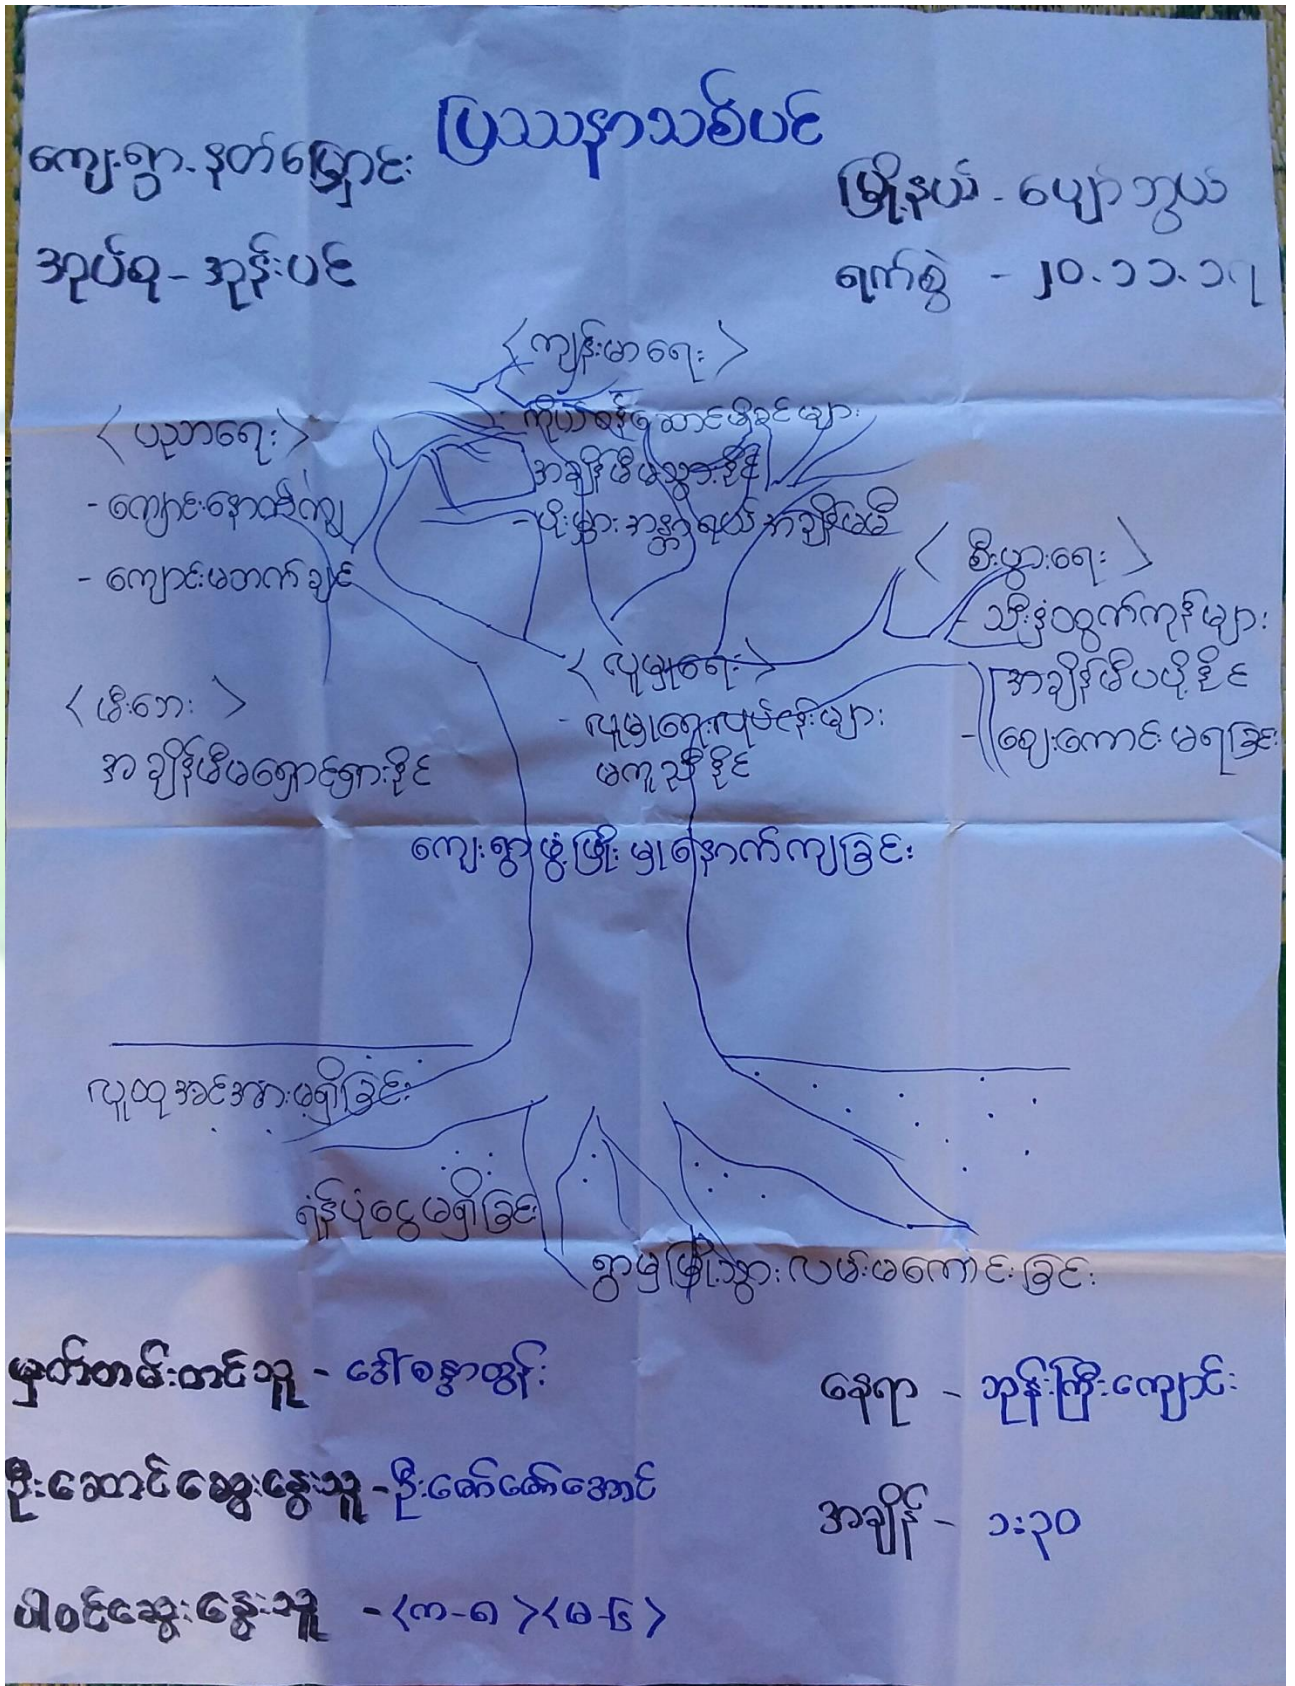 ပြဿနာသစ်ပင်
ကျေးရွာ - နတ်မြှောင်း
မြို့နယ် - ပျော်ဘွယ်
အုပ်စု - အုန်းပင်
ရက်စွဲ - ၂၀.၁၁.၁၇
<ကျန်းမာရေး>
- ကိုယ်ဝန်ဆောင်မိခင်များ
အချိန်မီမသွားနိုင်
- ပိုးမွှားအန္တာရယ်အချိန်မမီ
<ပညာရေး>
- ကျောင်းနောက်ကျ
- ကျောင်းမတက်ချင်
<စီးပွားရေး>
- သီးနှံထွက်ကုန်များ
အချိန်မီမပို့နိုင်
- ဈေးကောင်းမရခြင်း
<လူမှုရေး>
- လူမှုရေးလုပ်ငန်းများ
မကူညီနိုင်
<မီးဘေး>
အချိန်မီမရှောင်ရှားနိုင်
ကျေးရွာဖွံ့ဖြိုးမှုနောက်ကျခြင်း
လူထုအင်အားမရှိခြင်း
ရံန်ပုံငွေမရှိခြင်း
ရွာမှမြို့သွားလမ်းမကောင်းခြင်း
မှတ်တမ်းတင်သူ - ဒေါ်စန္ဒာထွန်း
နေရာ - ဘုန်းကြီးကျောင်း
ဦးဆောင်ဆွေးနွေးသူ - ဦးဇော်ဇော်အောင်
အချိန် - ၁:၃၀
ပါဝင်ဆွေးနွေးသူ - <က-၈> <မ-၆>